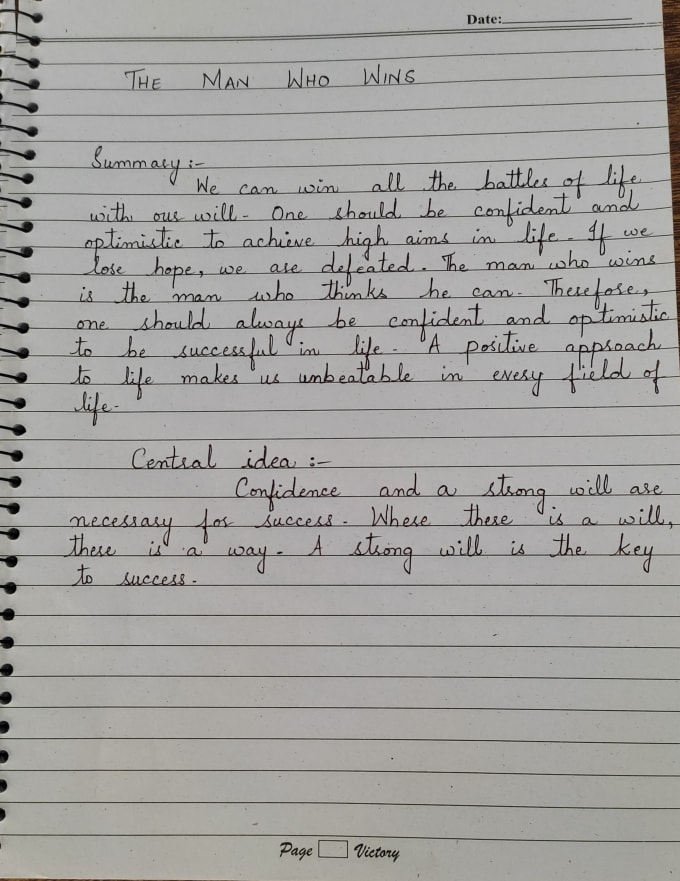 Date:
THE MAN WHO WINS
Summary :-
We can win all the battles of life
with our will. One should be confident and
optimistic to achieve high aims in life. If we
lose hope, we are defeated. The man who wins
is the man who thinks he can. Therefore,
one should always be confident and optimistic
to be successful in life. A positive approach
to life makes us unbeatable in every field of
life.
Central idea :-
Confidence and a strong will are
necessary for success. Where there is a will,
there is a way. A strong will is the key
to success.
Page Victory